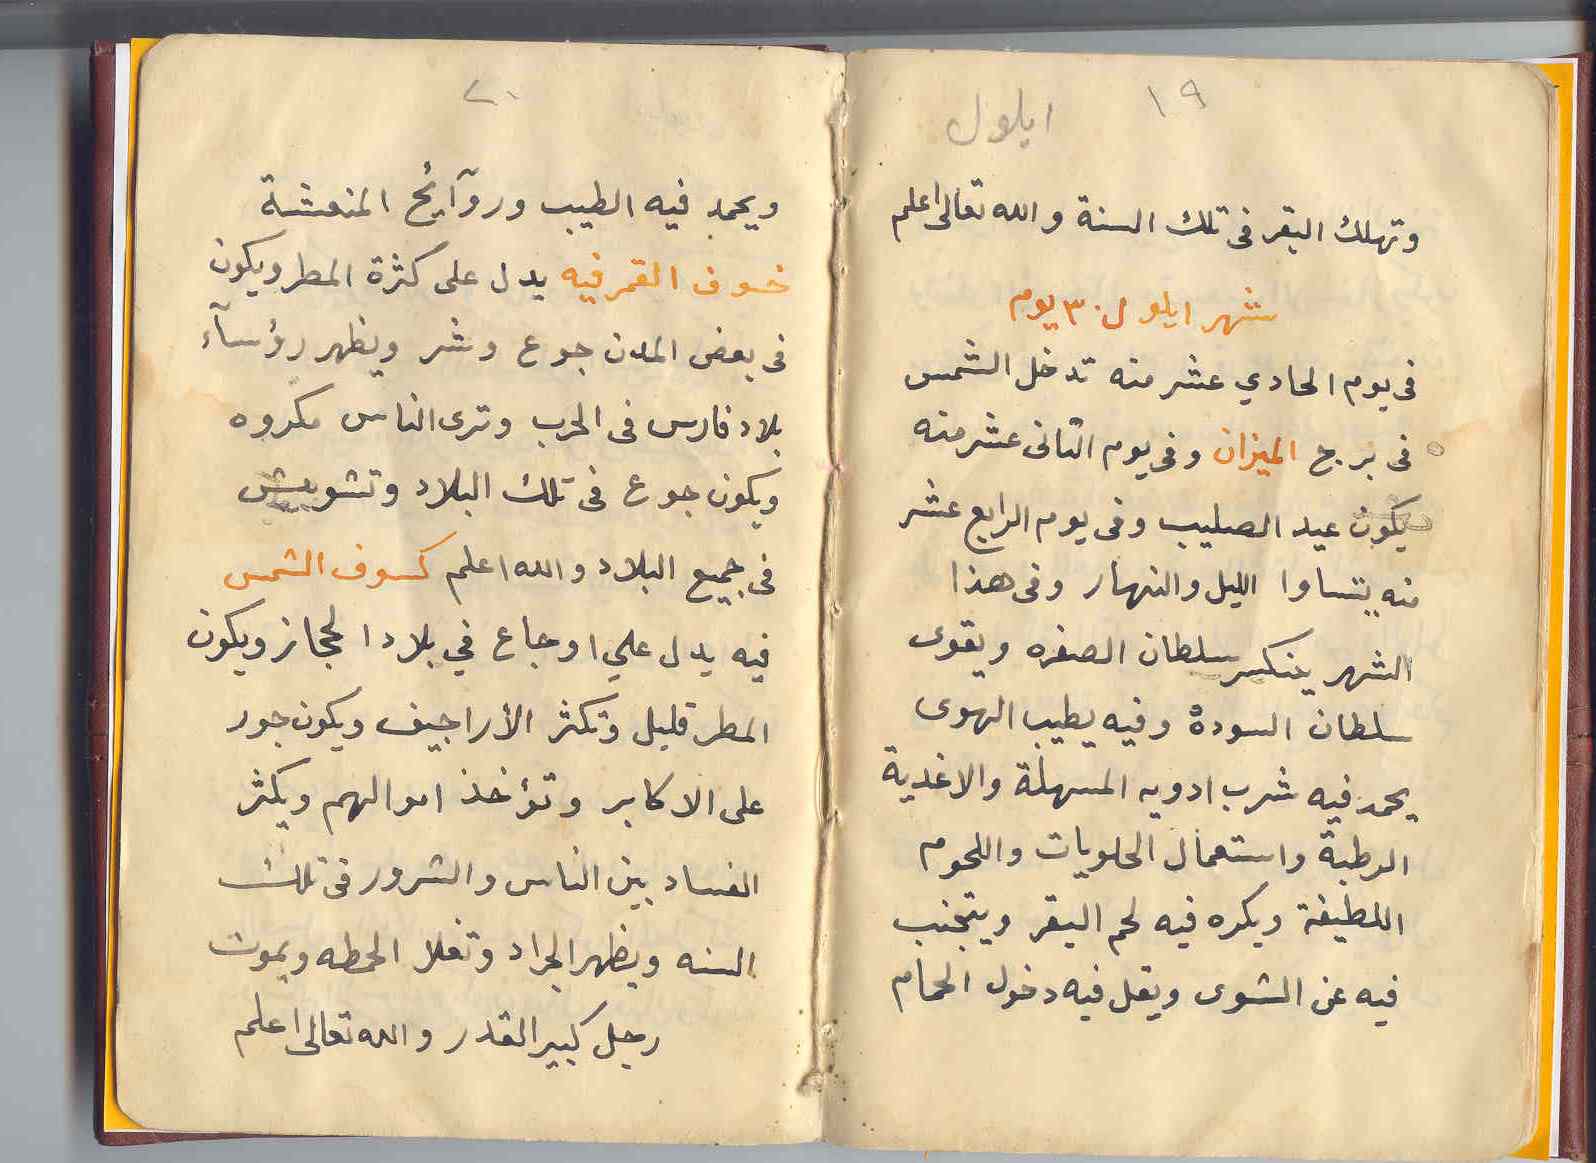 ١٩
ايلول
وتهلك البقر فى تلك السنة والله تعالى اعلم
شهر ايلول ٣٠ يوم
فى يوم الحادي عشر منه تدخل الشمس
فى برج الميزان وفى يوم الثانى عشر منه
يكون عيد الصليب وفى يوم الرابع عشر
منه يتساوا الليل والنهار وفى هذا
الشهر ينكسر سلطان الصفره ويقوى
سلطان السودة وفيه يطيب الهوى
يحمد فيه شرب ادويه المسهلة والاغدية
الرطبة واستعمال الحلويات واللحوم
اللطيفة ويكره فيه لحم البقر ويتجنب
فيه عن الشوى ويقل فيه دخول الحمام
٢٠
ويحمد فيه الطيب وروآئح المنعشة
خسوف القمر فيه يدل على كثرة المطر ويكون
فى بعض المدن جوع وشر ويظهر رؤسآء
بلاد فارس فى الحرب وترى الناس مكروه
ويكون جوع فى تلك البلاد وتشويش
فى جميع البلاد والله اعلم كسوف الشمس
فيه يدل علي اوجاع في بلاد الحجاز ويكون
المطر قليل وتكثر الأراجيف ويكون جور
على الاكابر وتؤخذ اموالهم ويكثر
الفساد بين الناس والشرور فى تلك
السنه ويظهر الجراد وتغلا الحطه ويموت
رجل كبير القدر والله تعالى اعلم